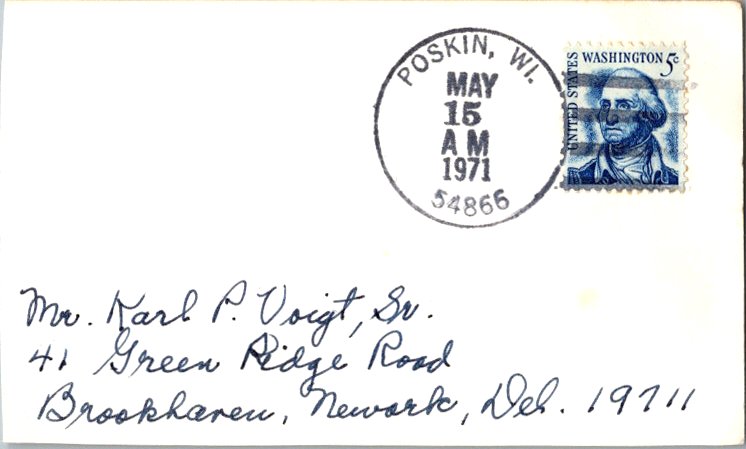 POSKIN, WI.
MAY
15
AM
1971
54866
UNITED STATES
WASHINGTON 5c
Mr. Karl P. Voigt, Sr.
41 Green Ridge Road
Brookhaven, Newark, Del. 19711